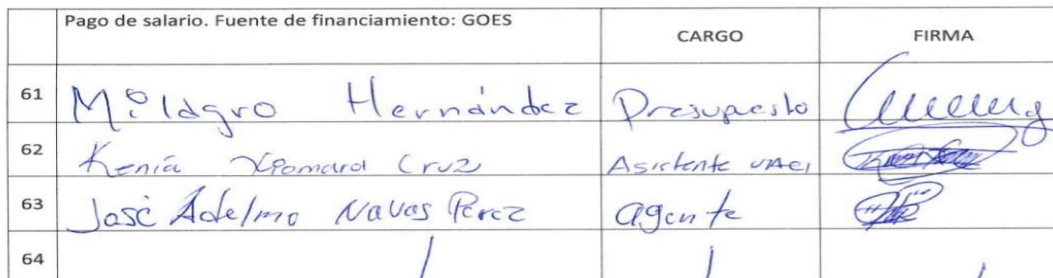 Pago de salario. Fuente de financiamiento: GOES CARGO FIRMA
61 Milagro Hernández Presupuesto
62 Kenia Xiomara Cruz Asistente UACI
63 José Adelmo Navas Perez agente
64